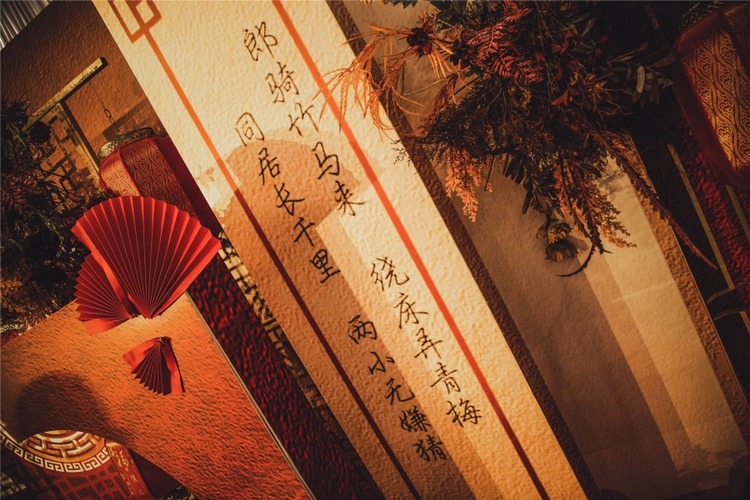 郎骑竹马来
绕床弄青梅
同居长千里
两小无嫌猜